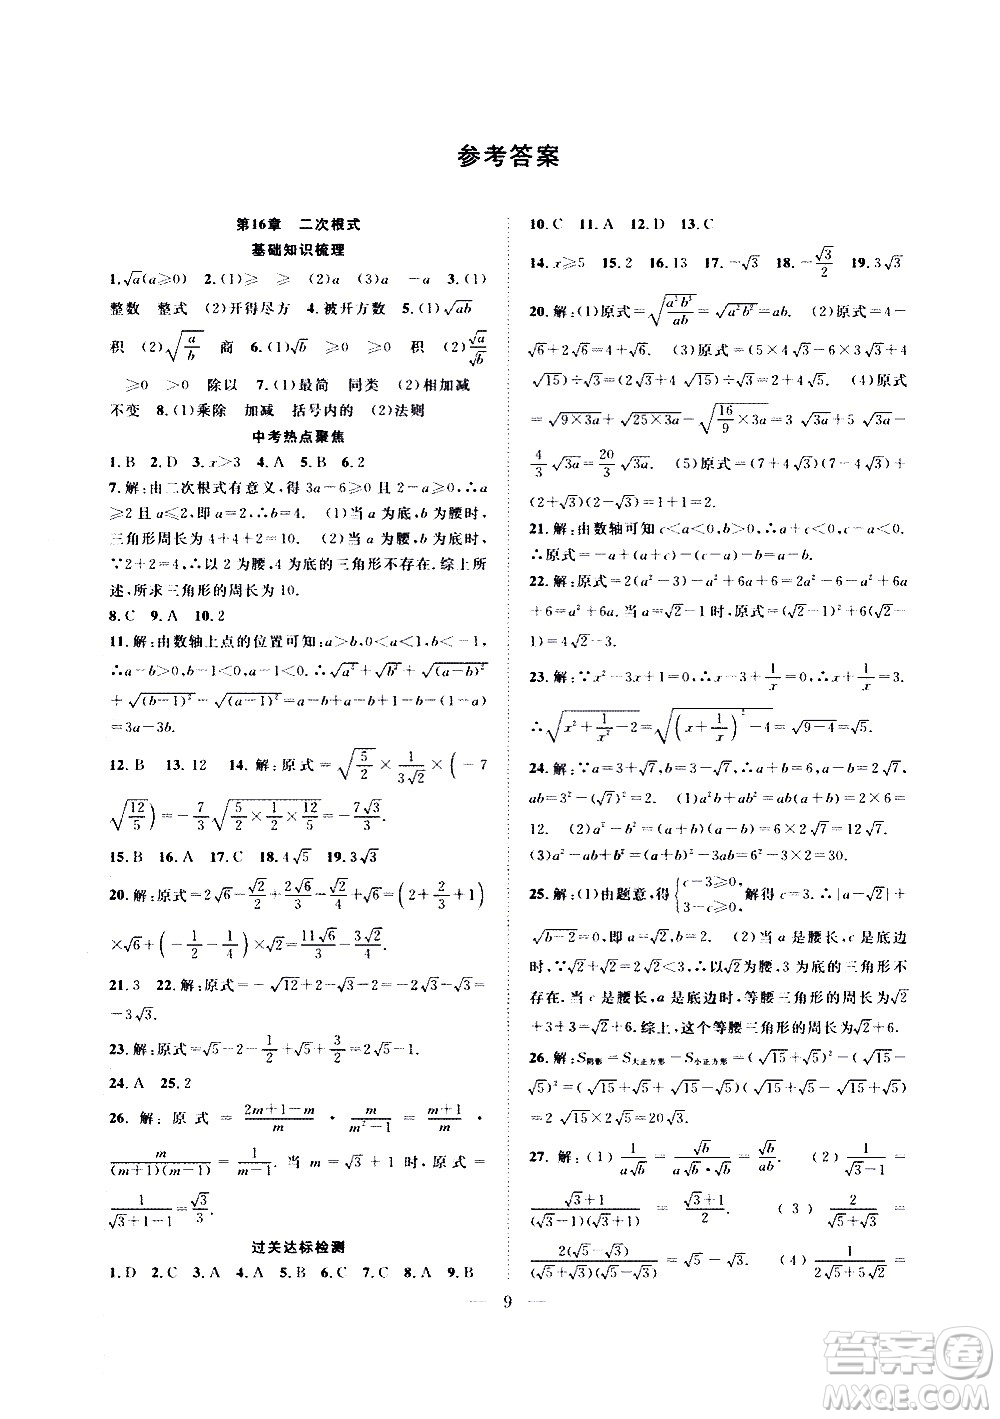 参考答案
第16章 二次根式
基础知识梳理
1.√a(a⩾0) 2.(1)⩾ ⩾ (2)a (3)a −a 3.(1)
整数 整式 (2)开得尽方 4.被开方数 5.(1)√ab
积 (2)√(a/b) 商 6.(1)√b ⩾0 ⩾0 积 (2)√a/√b
⩾0 ⩾0 除以 7.(1)最简 同类 (2)相加减
不变 8.(1)乘除 加减 括号内的 (2)法则
中考热点聚焦
1.B 2.D 3.x>3 4.A 5.B 6.2
7.解:由二次根式有意义,得 3a−6⩾0 且 2−a⩾0,∴a
⩾2 且 a⩽2,即 a=2,∴b=4. (1)当 a 为底,b 为腰时,
三角形周长为 4+4+2=10. (2)当 a 为腰,b 为底时,
∵2+2=4,∴以 2 为腰,4 为底的三角形不存在.综上所
述,所求三角形的周长为 10.
8.C 9.A 10.2
11.解:由数轴上点的位置可知:a>b,0<a<1,b<−1,
∴a−b>0,1−b>0,a−1<0. ∴√a²+√b²+√(a−b)²
+√(b−1)²−√(a−1)²=a−b+a−b+1−b−(1−a)
=3a−3b.
12.B 13.12 14.解:原式=√(5/2)×1/(3√2)×(−7
√(12/5))=−7/3√(5/2×1/2×12/5)=−7√3/3.
15.B 16.A 17.C 18.4√5 19.3√3
20.解:原式=2√6−√2/2+√6/2−√2/4+√6=(2+1/2+1)
×√6+(−1/2−1/4)×√2=11√6/3−3√2/4.
21.3 22.解:原式=−√12+√3−2=−2√3+√3−2=
−3√3.
23.解:原式=√5−2−1/2+1/2=√5−2.
24.A 25.2
26.解:原式=(2m+1−m)/m·m/(m²−1)=(m+1)/m·
m/((m+1)(m−1))=1/(m−1). 当 m=√3+1 时,原式=
1/(√3+1−1)=√3/3.
过关达标检测
1.D 2.C 3.A 4.A 5.B 6.C 7.C 8.A 9.B
10.C 11.A 12.D 13.C
14.x⩾5 15.2 16.13 17.−√3 18.−√3/2 19.3√3
20.解:(1)原式=√(a³b³/ab)=√a²b²=ab. (2)原式=4−
√6+2√6=4+√6. (3)原式=(5×4√3−6×3√3+4
√15)÷√3=(2√3+4√15)÷√3=2+4√5. (4)原式
=√(9×3a)+√(25×3a)−√(16/9×3a)=3√3a+5√3a−
4/3√3a=20/3√3a. (5)原式=(7+4√3)(7−4√3)+
(2+√3)(2−√3)=1+1=2.
21.解:由数轴可知 c<a<0,b>0,∴a+c<0,c−b<0.
∴原式=−a+(a+c)−(c−b)−b=0.
22.解:原式=2(a²−3)−a²+6a+6=2a²−6−a²+6a
+6=a²+6a. 当 a=√2−1 时,原式=(√2−1)²+6(√2
−1)=4√2−3.
23.解:∵x²−3x+1=0,∴x−3+1/x=0,∴x+1/x=3.
∴√(x²+1/x²−2)=√((x+1/x)²−4)=√(9−4)=√5.
24.解:∵a=3+√7,b=3−√7,∴a+b=6,a−b=2√7,
ab=3²−(√7)²=2. (1)a²b+ab²=ab(a+b)=2×6=
12. (2)a²−b²=(a+b)(a−b)=6×2√7=12√7.
(3)a²−ab+b²=(a+b)²−3ab=6²−3×2=30.
25.解:(1)由题意,得{c−3⩾0, 3−c⩾0,解得 c=3. ∴|a−√2|+
√(b−2)=0,即 a=√2,b=2. (2)当 a 是腰长,c 是底边
时,∵√2+√2=2√2<3,∴以√2为腰,3 为底的三角形不
存在.当 c 是腰长,a 是底边时,等腰三角形的周长为√2
+3+3=√2+6.综上,这个等腰三角形的周长为√2+6.
26.解:S阴影=S大正方形−S小正方形=(√15+√5)²−(√15−
√5)²=(√15+√5+√15−√5)(√15+√5−√15+√5)
=2√15×2√5=20√3.
27.解:(1)1/(a√b)=√b/(a√b·√b)=√b/ab. (2)1/(√3−1)=
(√3+1)/((√3−1)(√3+1))=(√3+1)/2. (3)2/(√5+√3)=
2(√5−√3)/((√5+√3)(√5−√3))=√5−√3. (4)1/(2√5+5√2)=
9
答案卷
MXQE.COM